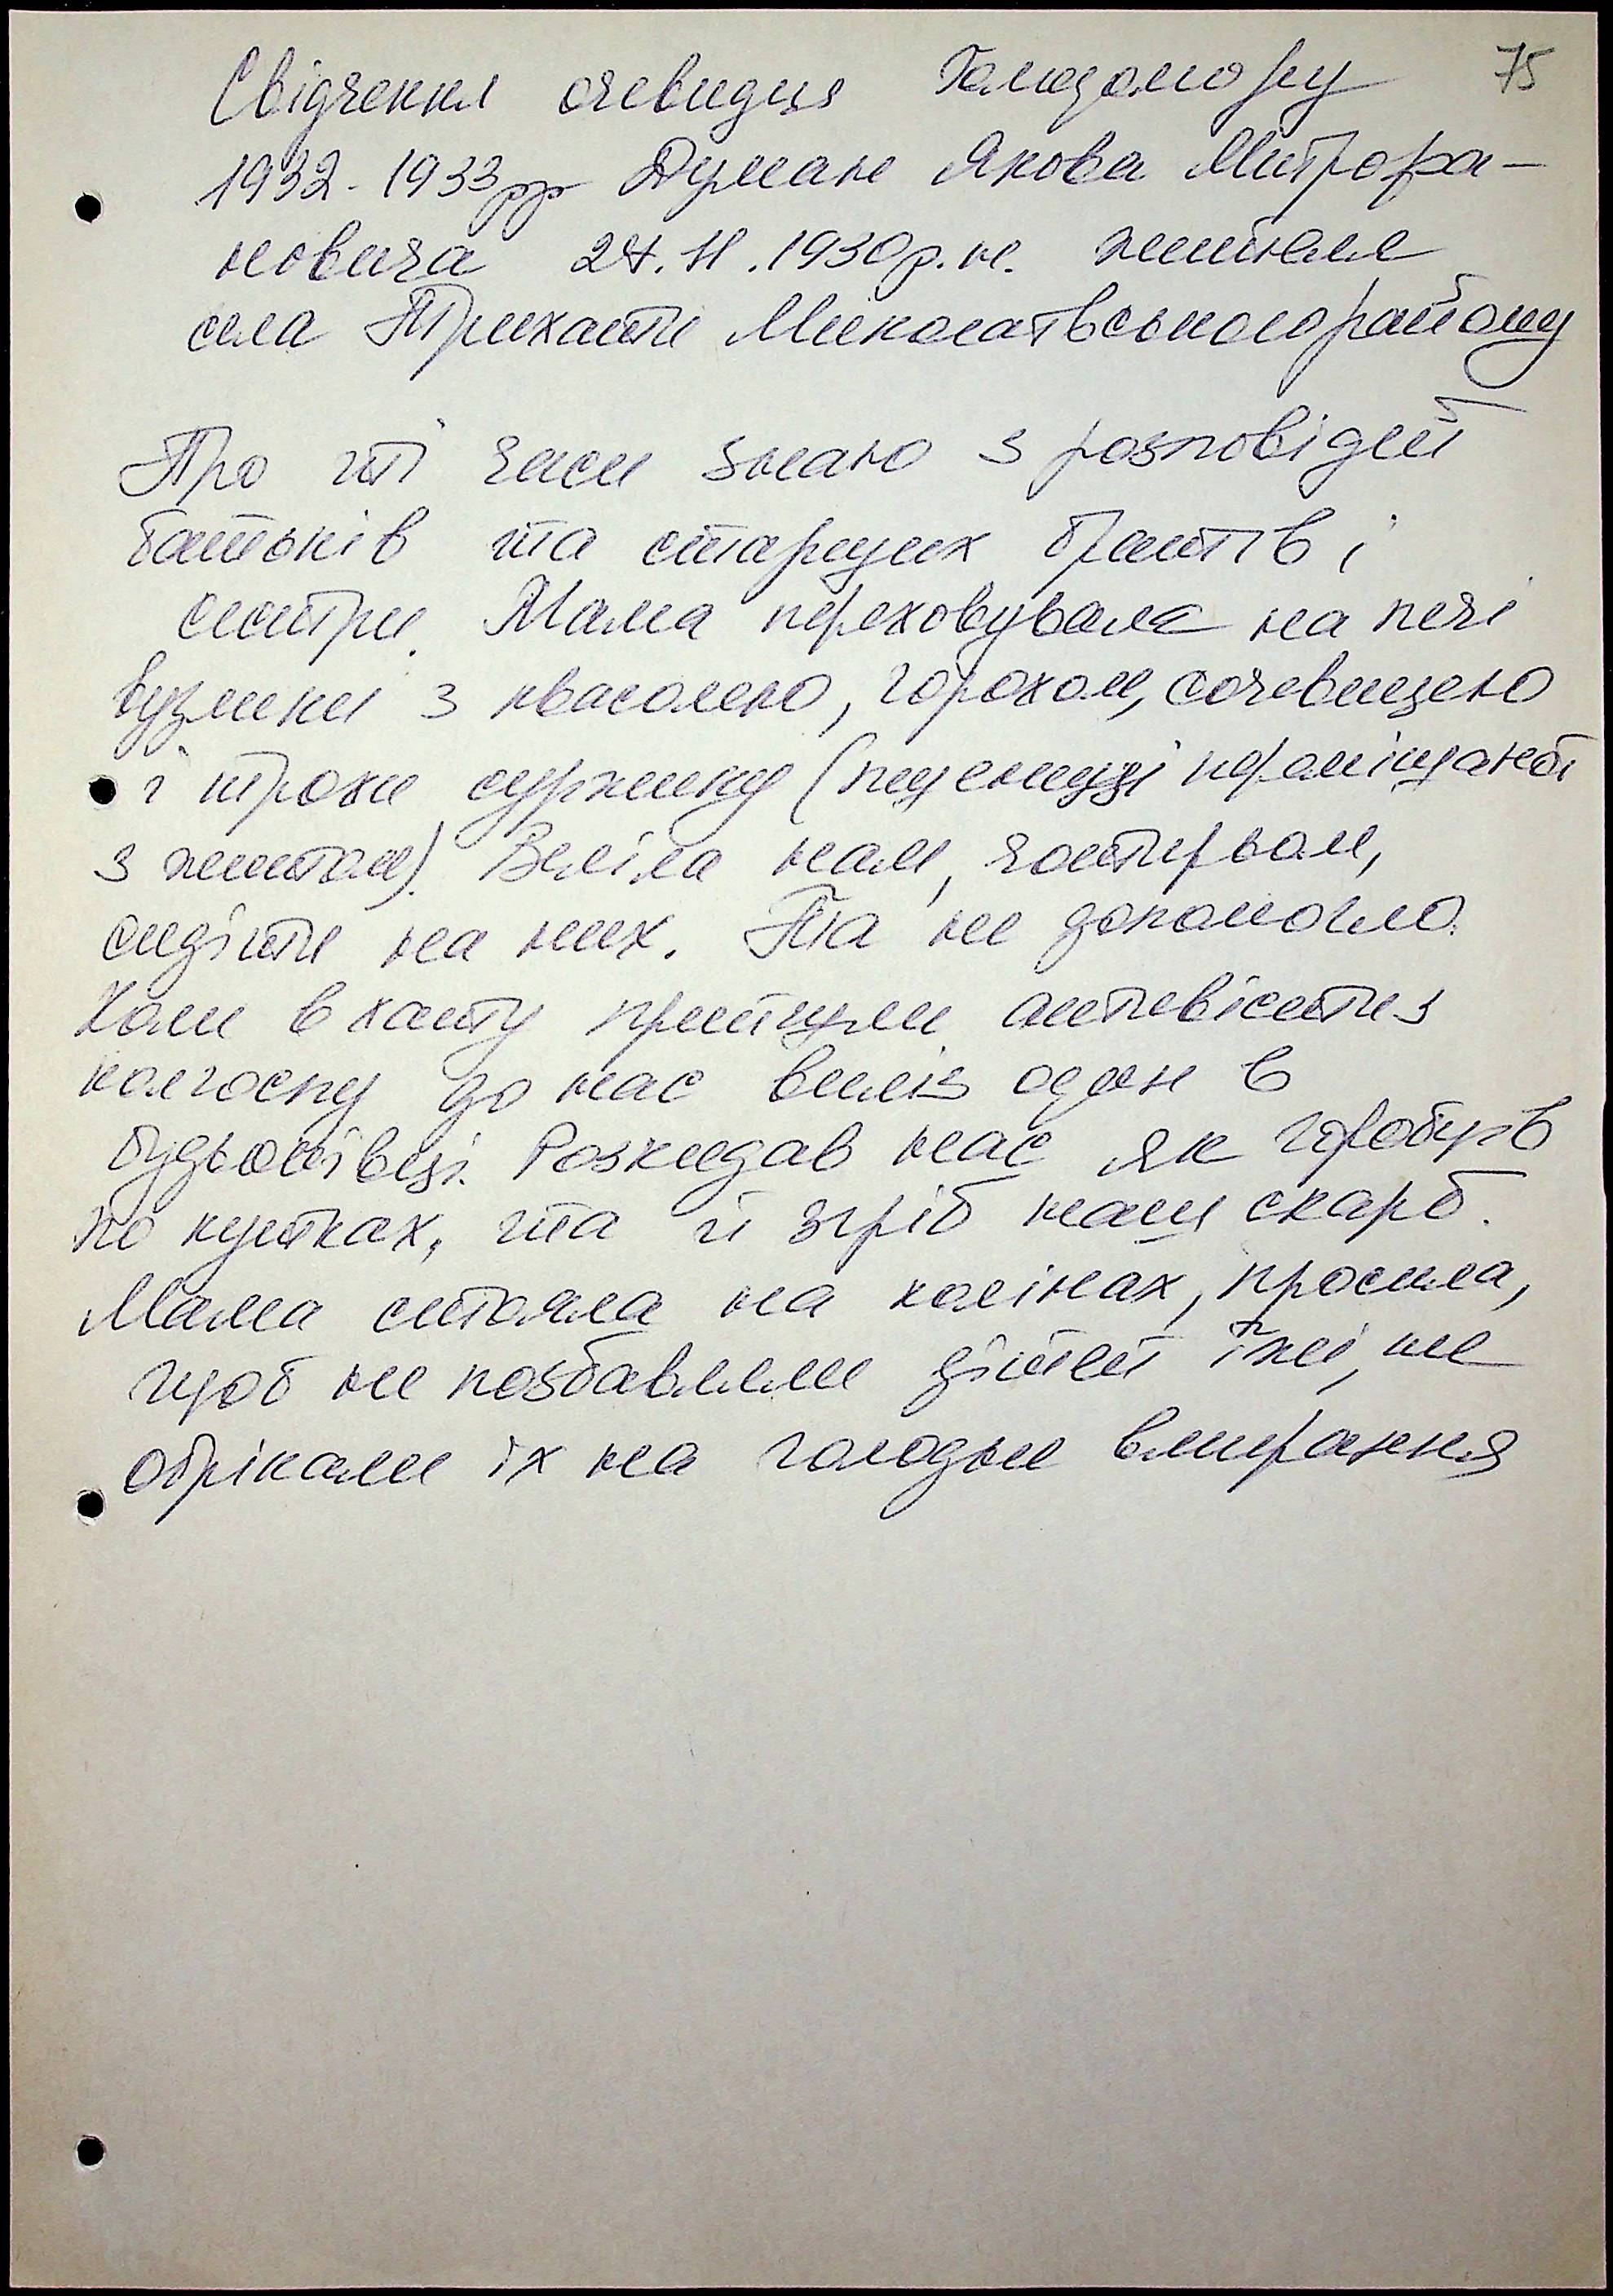 75
Свідчення очевидця Голодомору
1932-1933рр Думан Якова Митрофа-
новича 24.11.1930р.н. жителя
села Трихати Миколаївського району
Про ті часи знаю з розповідей
батьків та старших братів і
сестри. Мама переховувала на печі
вузлики з квасолею, горохом, сочевицею
і трохи суржику (пшениці переміщаної
з житом). Веліла нам, чотирьом,
сидіти на них. Та не допомогло.
Коли в хату прийшли активісти з
колгоспу до нас виліз один в
будьонівці. Розкидав нас як горобців
по кутках, та й згріб наш скарб.
Мама стояла на колінах, просила,
щоб не позбавляли дітей їжі, не
обрікали їх на голодне вмирання